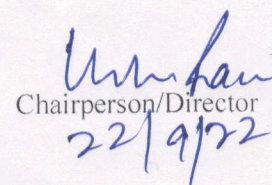 Chairperson/Director
22/9/22